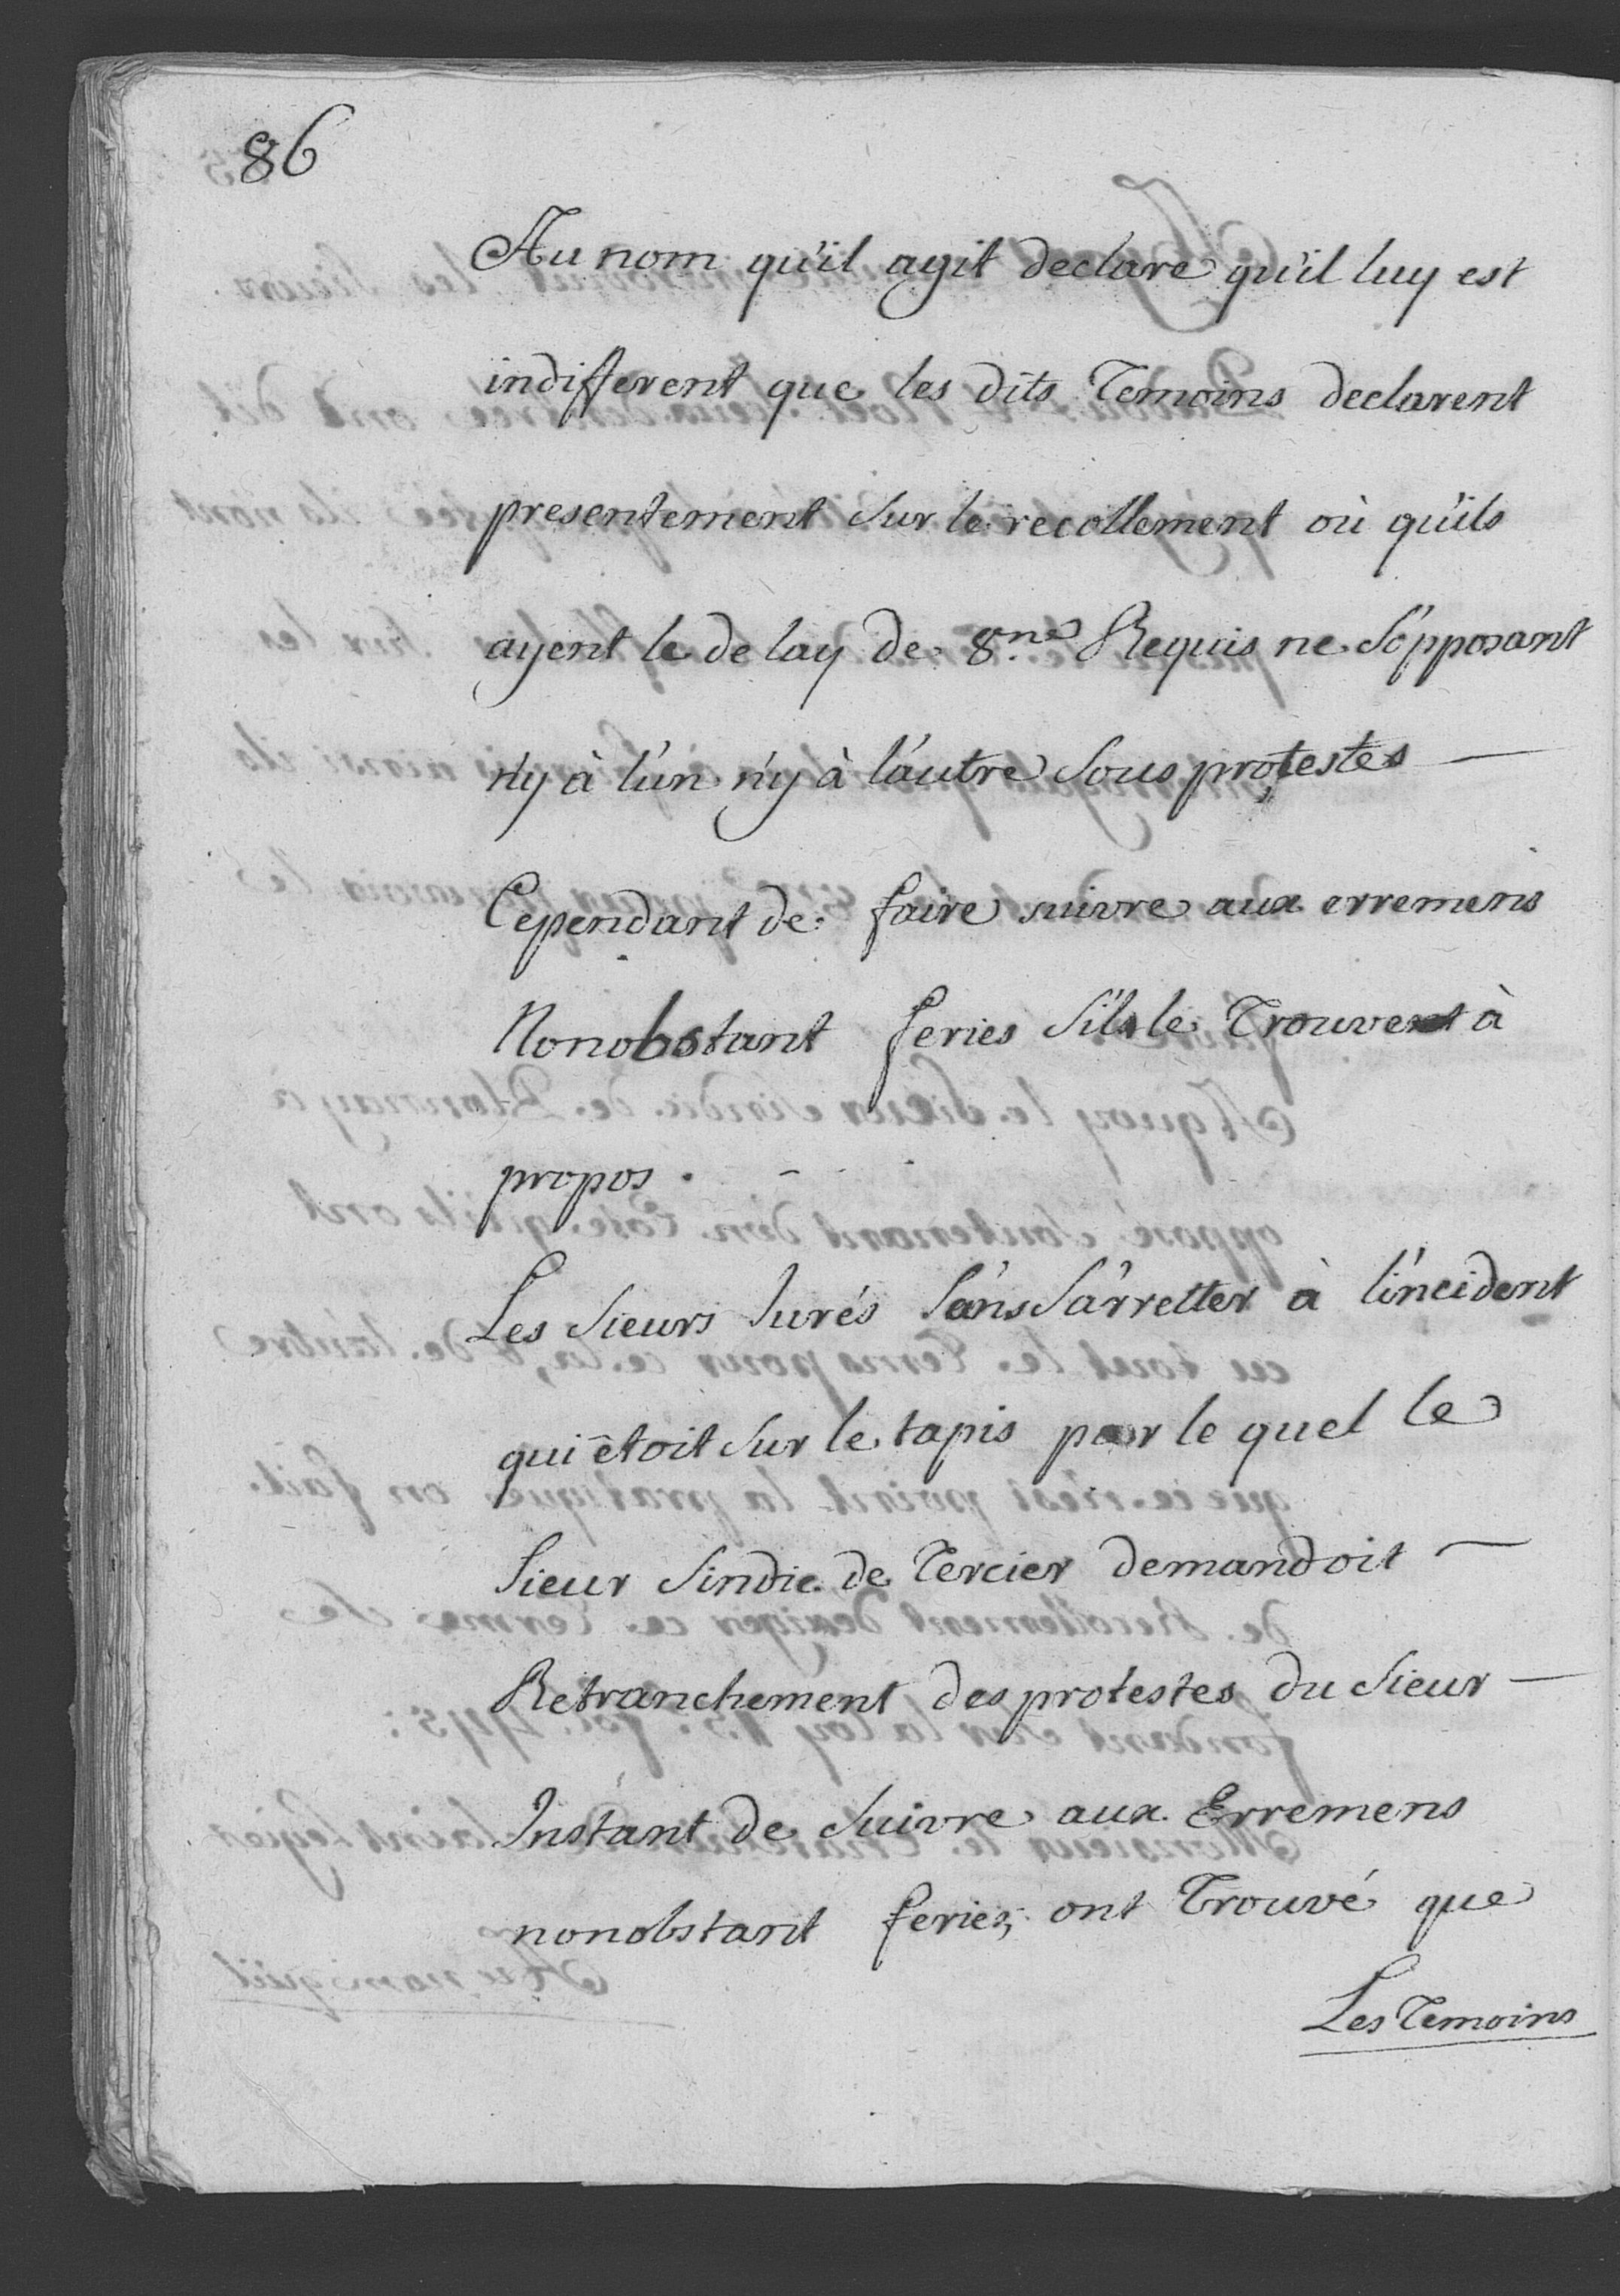 86
Au nom qu'il agit declare qu'il luy est
indifferent que les dits Temoins declarent
presentement sur le recollement où qu'ils
ayent le delay de 8.ne Requis ne s'opposant
n'y à l'un n'y à l'autre sous protestes —
Cependant de faire suivre aux erremens
Nonobstant feries s'ils le Trouvent à
propos. -
Les Sieurs Jurés sans s'arretter à l'incident
qui êtoit sur le tapis par le quel le
Sieur Sindic de Tercier demandoit —
Retranchement des protestes du Sieur —
Instant de suivre aux Erremens
nonobstant feries, ont Trouvé que
Les Temoins